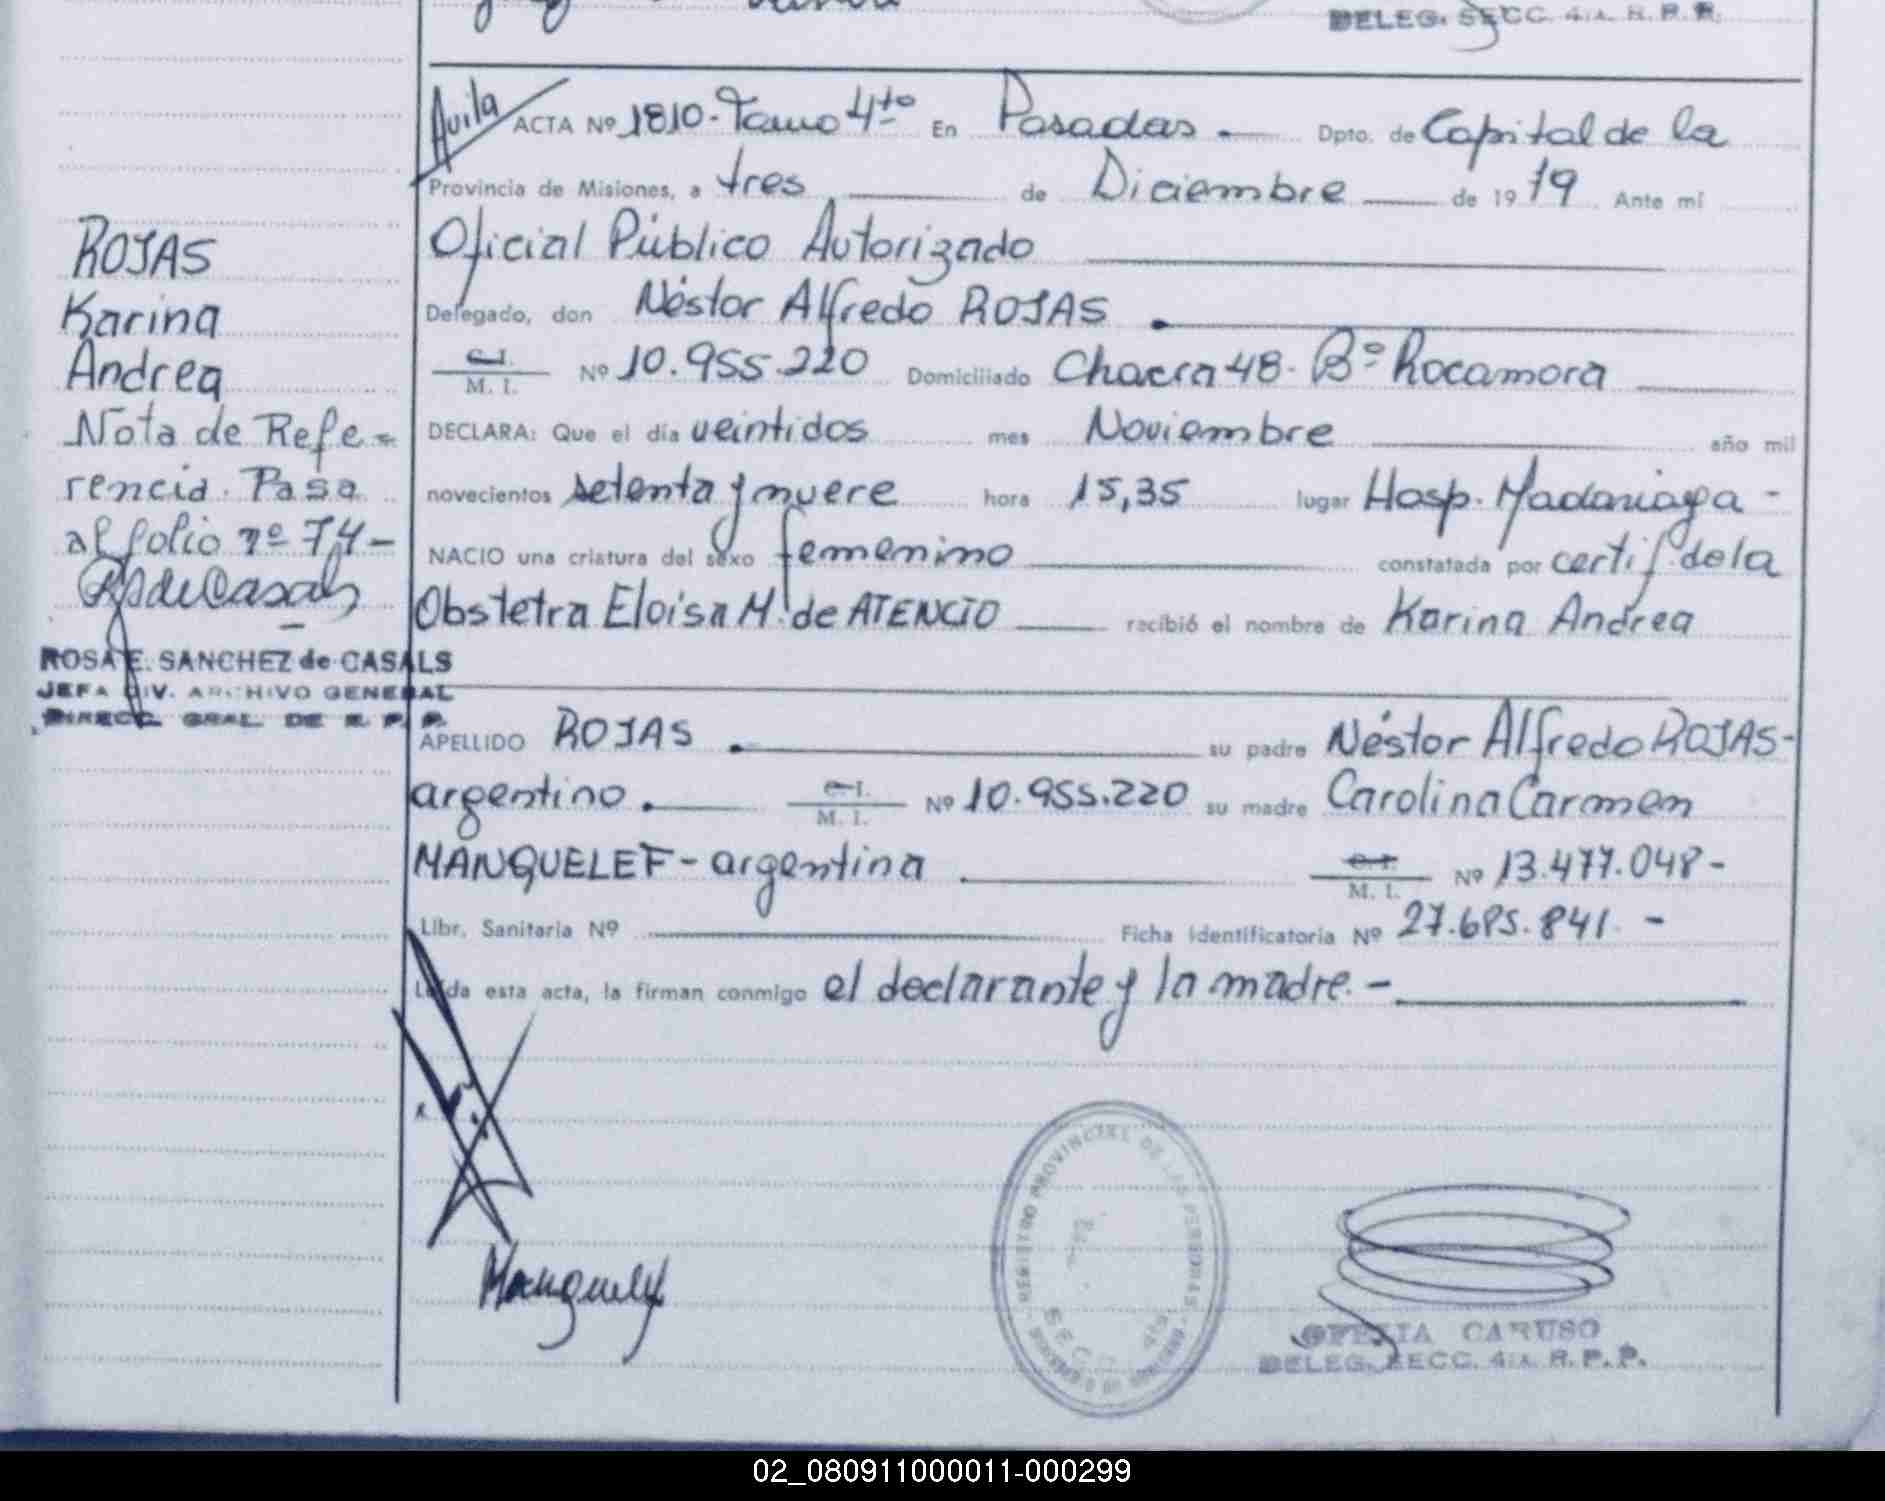 DELEG. SECC. 4ta. R. P. P.
Avila ACTA Nº 1810- Tomo 4to En Posadas.- Dpto. de Capital de la
Provincia de Misiones, a tres de Diciembre de 1979 Ante mí
Oficial Público Autorizado
Delegado, don Néstor Alfredo ROJAS
C. I.
M. I. Nº 10.955.220 Domiciliado Chacra 48- Bº Rocamora
DECLARA: Que el día veintidos mes Noviembre año mil
novecientos setenta y nueve hora 15,35 lugar Hosp. Madariaga -
NACIO una criatura del sexo femenino constatada por certif. de la
Obstetra Eloisa M. de ATENCIO recibió el nombre de Karina Andrea
APELLIDO ROJAS su padre Néstor Alfredo ROJAS-
argentino. C. I.
M. I. Nº 10.955.220 su madre Carolina Carmen
MANQUELEF- argentina C. I.
M. I. Nº 13.477.048-
Libr. Sanitaria Nº Ficha Identificatoria Nº 27.685.841 -
Leída esta acta, la firman conmigo el declarante y la madre.-
ROJAS
Karina
Andrea
Nota de Refe-
rencia. Pasa
al folio nº 74-
RSdeCasals
ROSA E. SANCHEZ de CASALS
JEFA DIV. ARCHIVO GENERAL
DIRECC. GRAL. DE R. P. P.
Manquelef
REGISTRO PROVINCIAL DE LAS PERSONAS
SECC. 4ta.
OFELIA CARUSO
DELEG. SECC. 4ta. R. P. P.
02_080911000011-000299